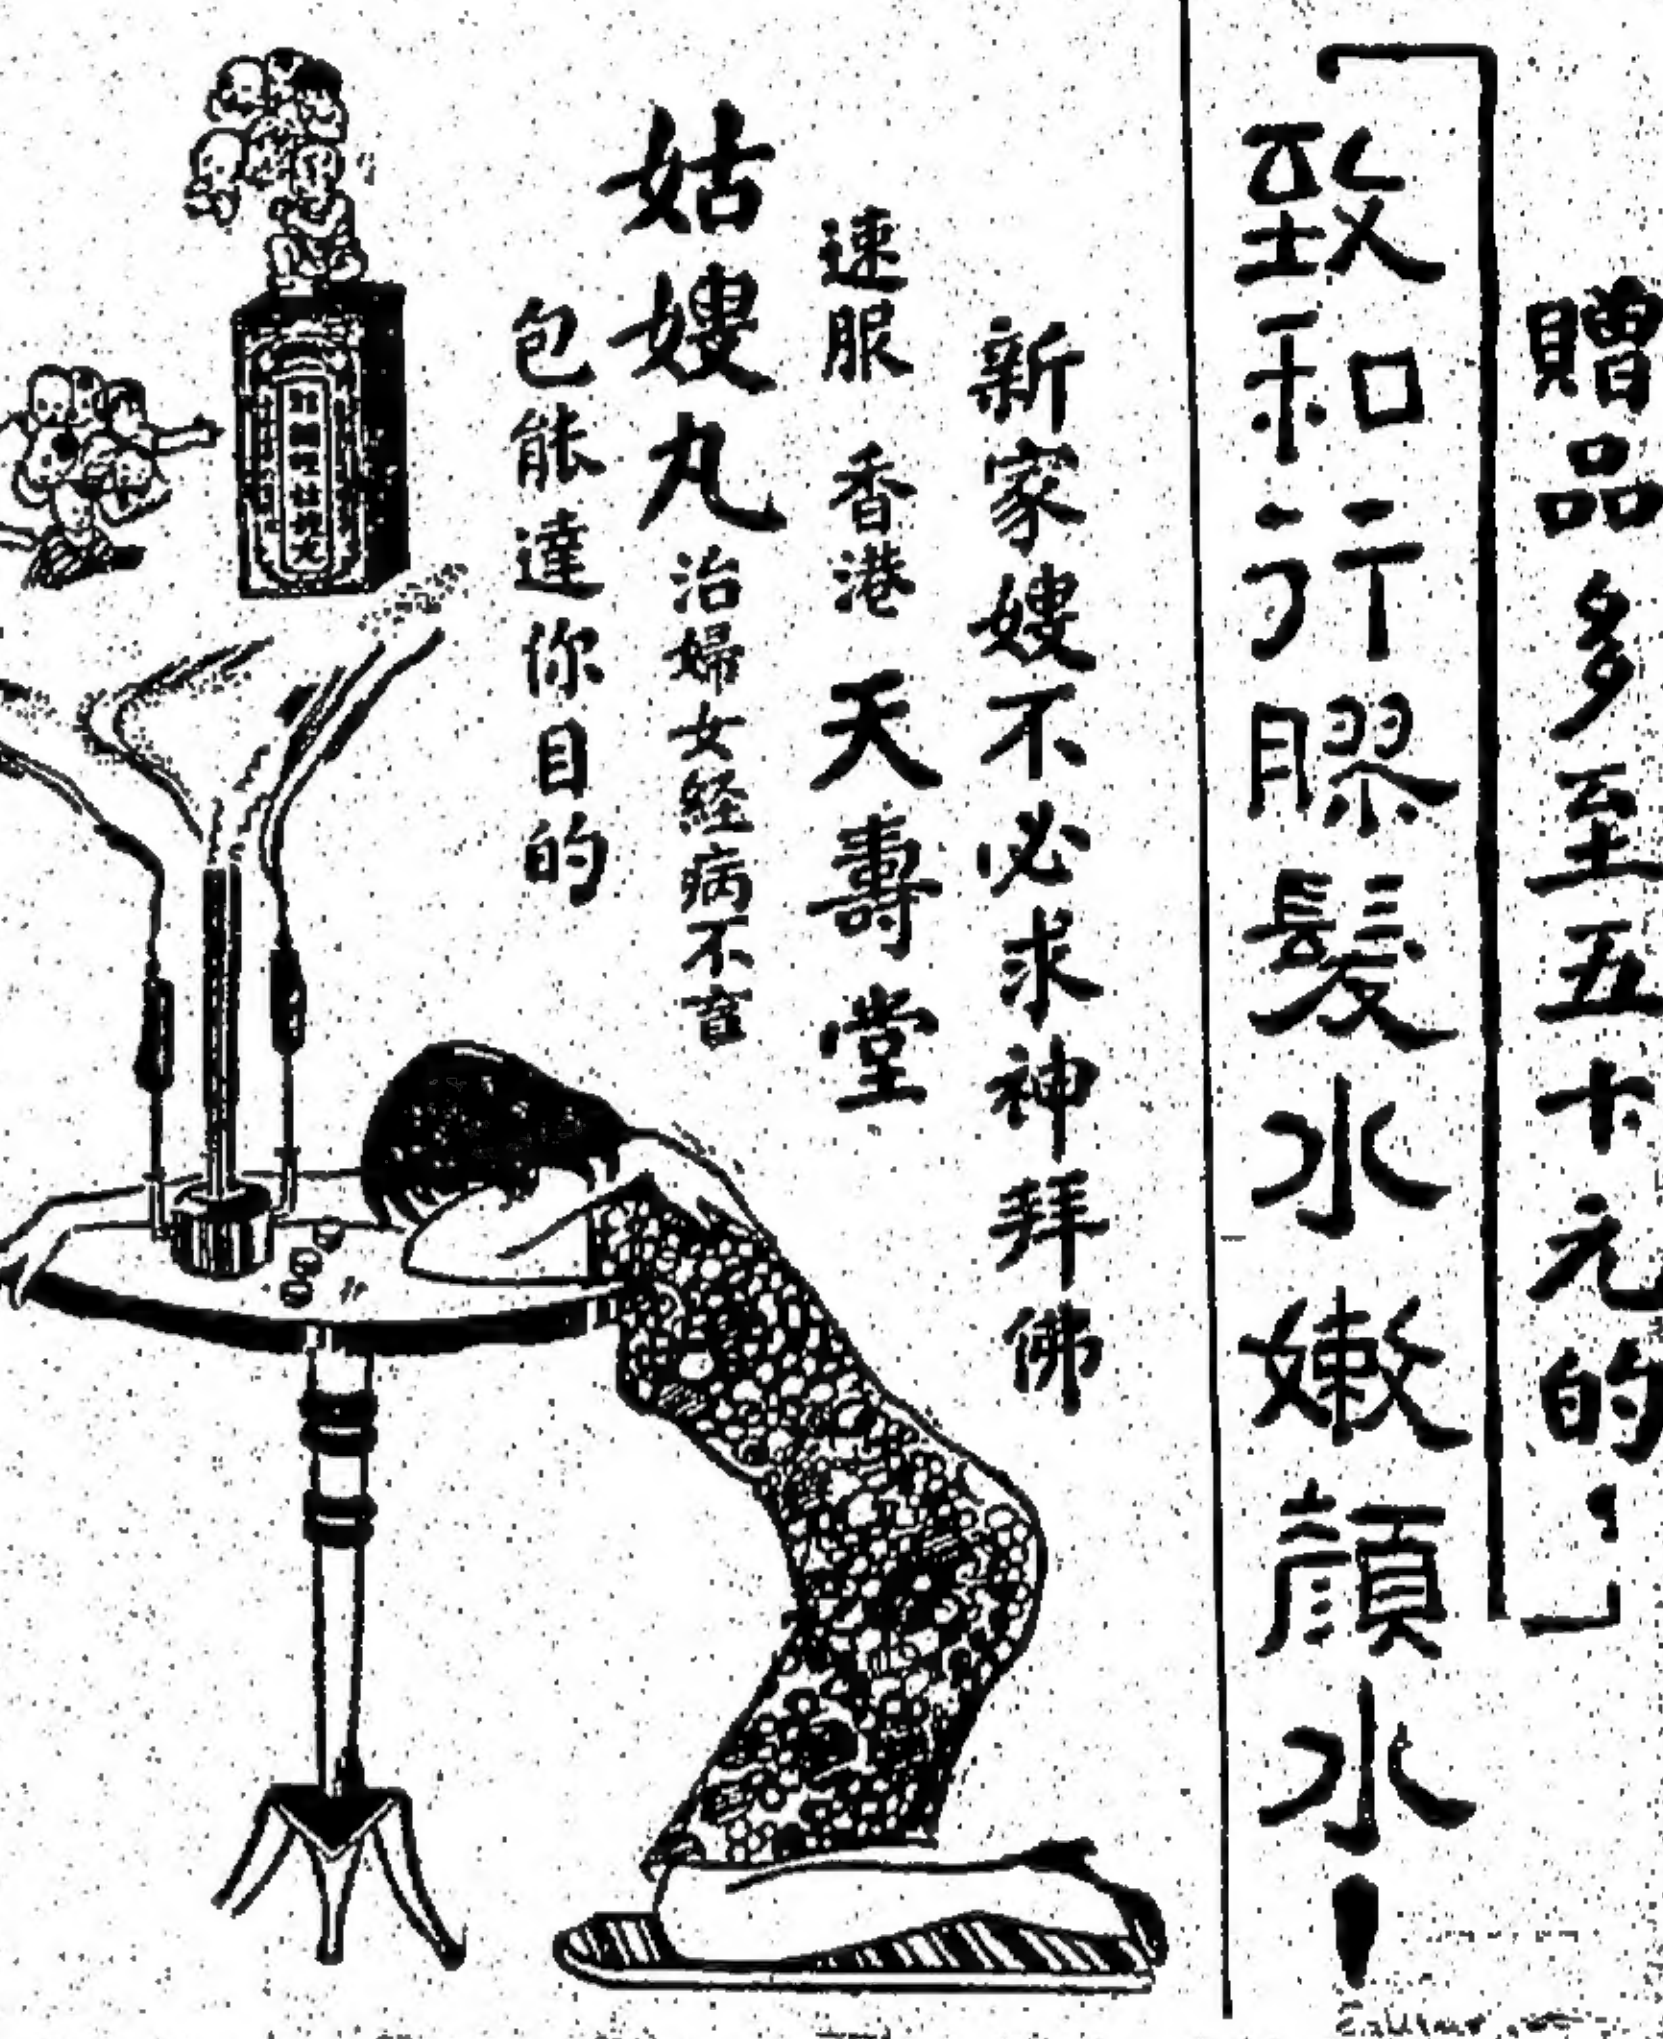 贈品多至五十元的！
致和行膠髮水嫩顏水！
新家嫂不必求神拜佛
速服 香港 天壽堂
姑嫂丸 治婦女經病不育
包能達你目的